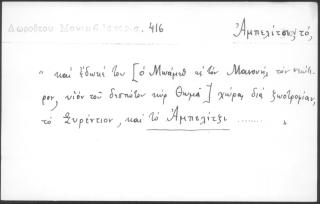 Δωροθέου Μονεμβ. Ἱστορία. 416 Ἀμπελίτσι, τό,
" καὶ ἔδωκέ του [ ὁ Μπάμπτ κὲ τὸν Μανουήλ τὸν νεώτε-
ρον, υἱὸν τοῦ δεσπότου κὺρ Θωμᾶ ] χώρας διὰ ζωοτροφίαν,
τὸ Συρέντιον, καὶ τὸ Ἀμπελίτζι ........ "